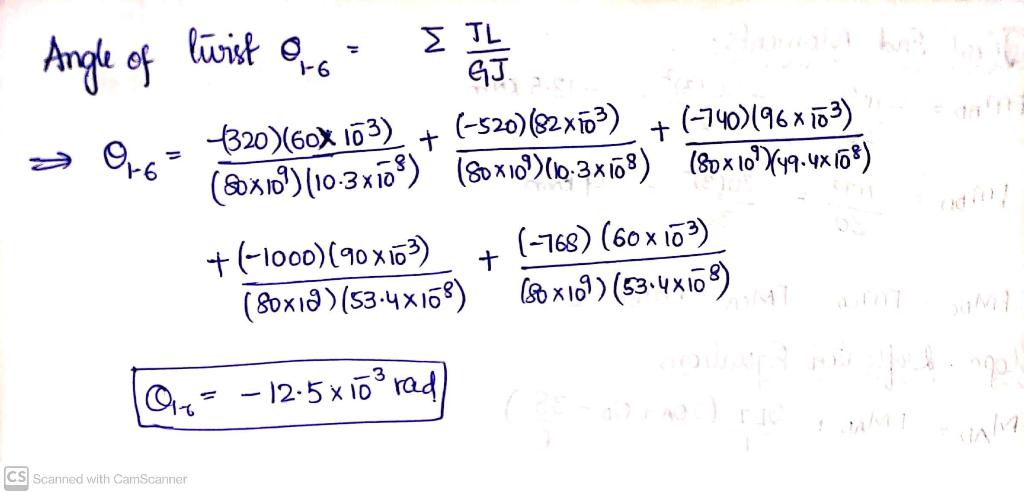 Angle of twist θ₁₋₆ = Σ TL / GJ
⇒ θ₁₋₆ = (-320)(60 × 10⁻³) / (80×10⁹)(10.3×10⁻⁸) + (-520)(82×10⁻³) / (80×10⁹)(10.3×10⁻⁸) + (-740)(96×10⁻³) / (80×10⁹)(49.4×10⁻⁸)
+ (-1000)(90×10⁻³) / (80×10⁹)(53.4×10⁻⁸) + (-768)(60×10⁻³) / (80×10⁹)(53.4×10⁻⁸)
θ₁₋₆ = -12.5×10⁻³ rad
CS Scanned with CamScanner